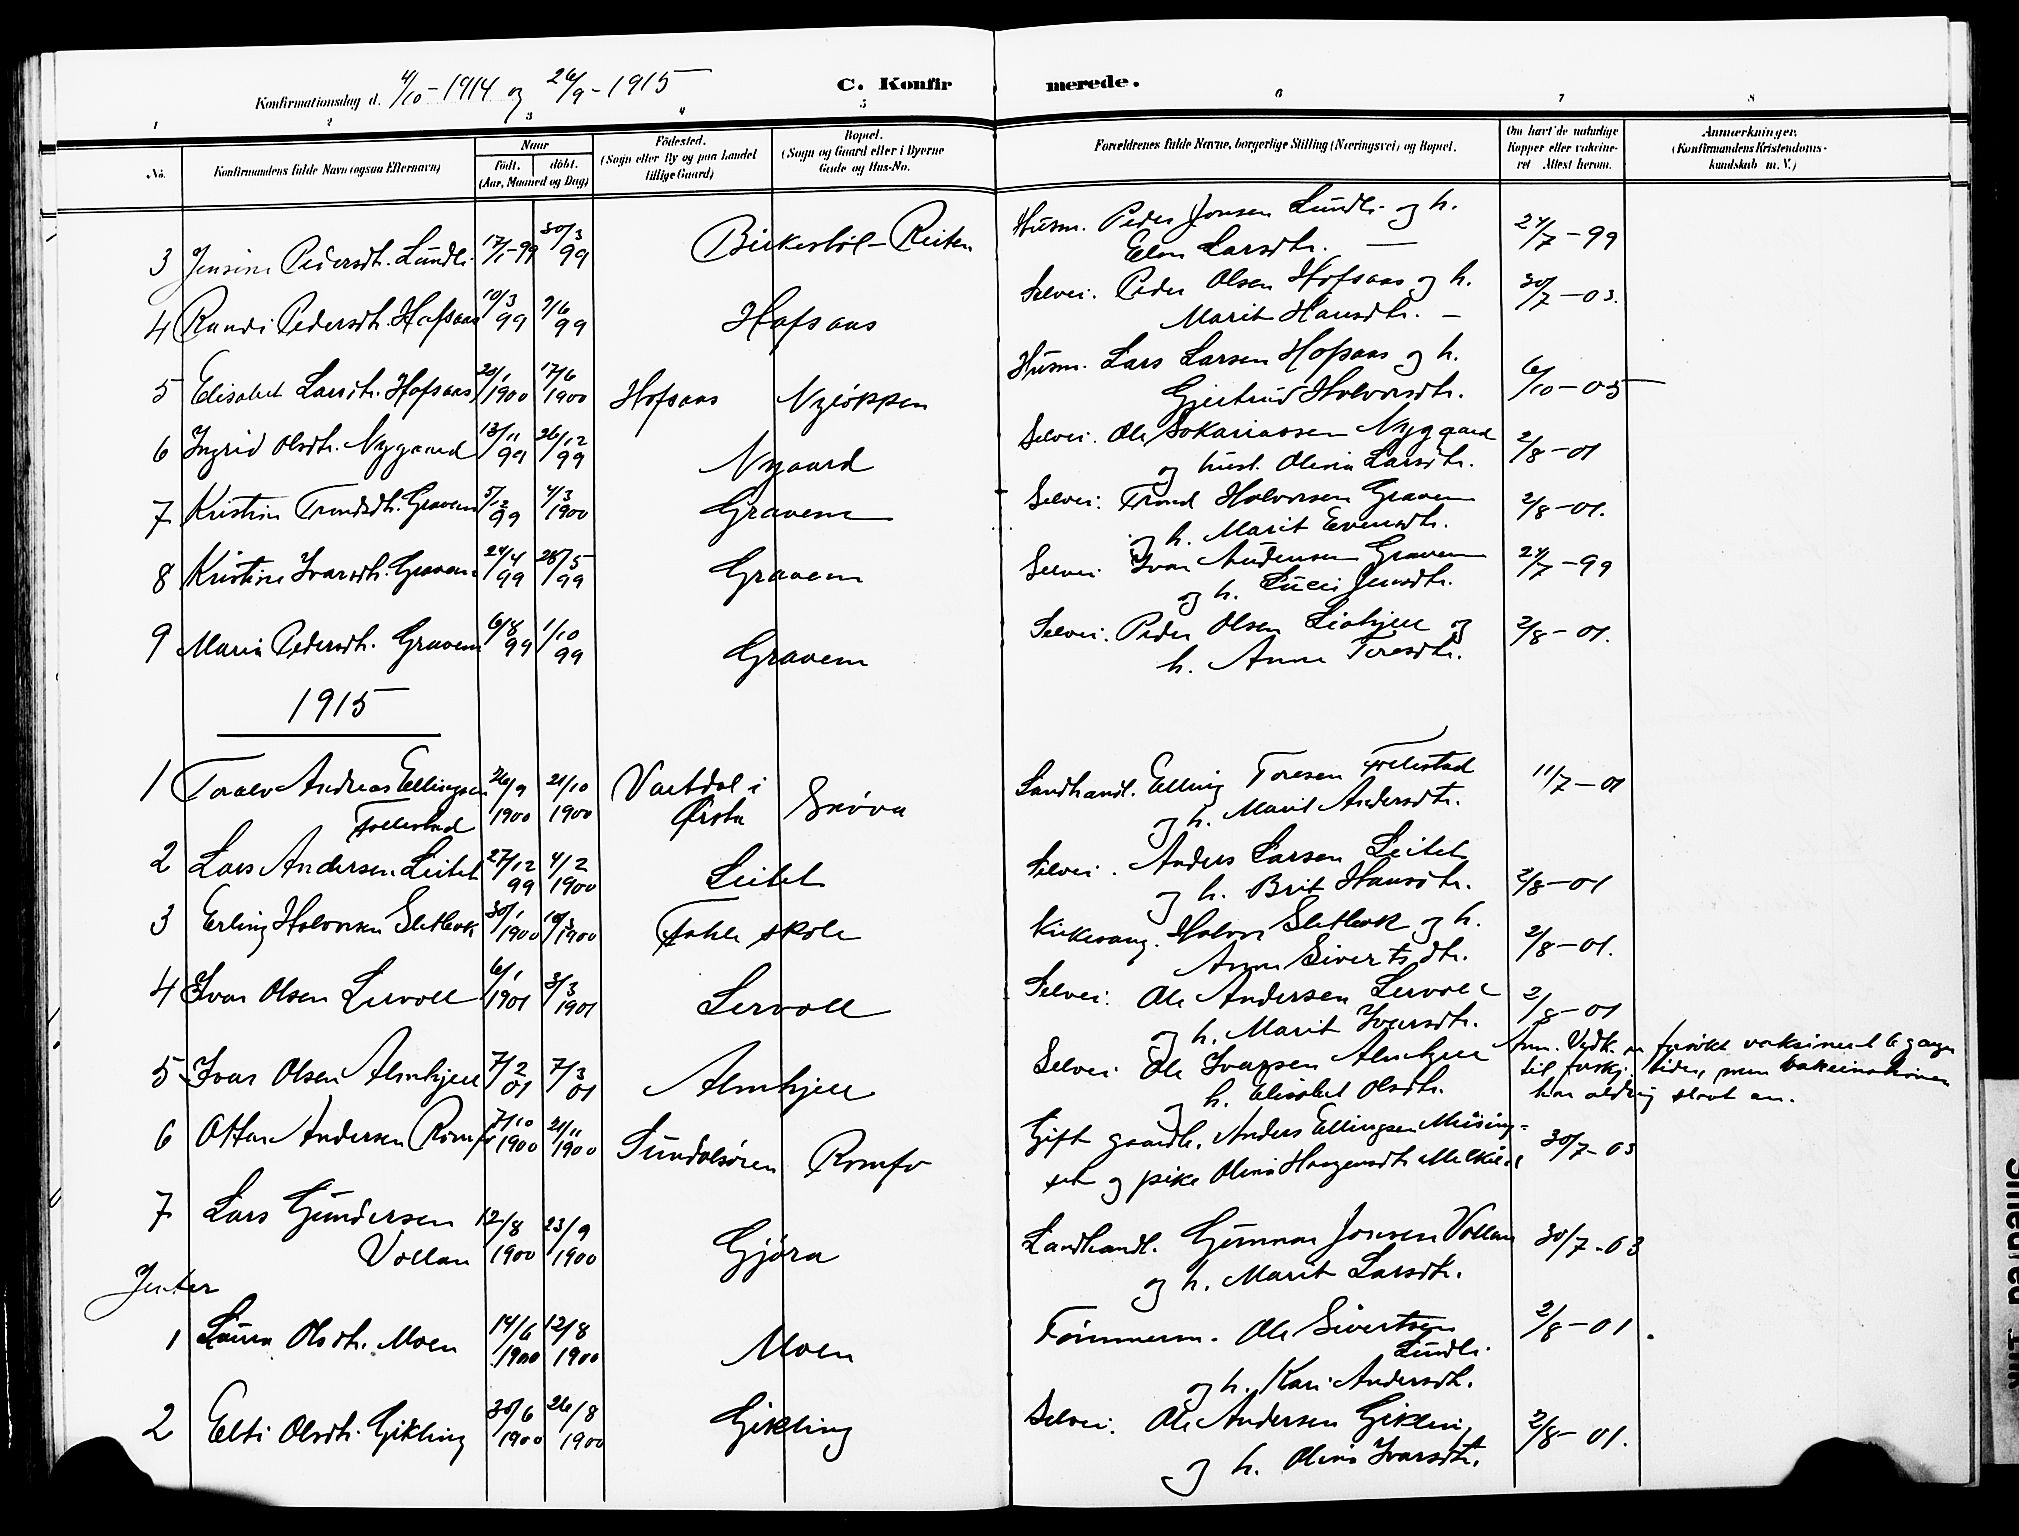 Konfirmationsdag d. 4/10-1914 og 26/9-1915 C. Konfirmerede.
1 2 3 4 5 6 7 8
No.
Konfirmandens fulde Navn (ogsaa Efternavn)
Naar
født. døbt.
(Aar, Maaned og Dag)
Fødested.
(Sogn eller By og paa Landet
tillige Gaard)
Bopæl.
(Sogn og Gaard eller i Byerne
Gade og Hus-No.
Forældrenes fulde Navne, borgerlige Stilling (Næringsvei) og Bopæl.
Om havt de naturlige
Kopper eller vaksine-
ret Attest herom.
Anmærkninger.
(Konfirmandens Kristendoms-
kundskab m. V.)
3 Jensine Pedersdt. Lundli 17/1-99 30/3 99 Birkestøl-Reiten Husm. Peder Jonsen Lundli og h.
Elen Larsdtr. — 24/7-99
4 Randi Pedersdt. Hafsaas 10/3 99 99 Hafsaas Selvei. Peder Olsen Hofsaas og h.
Marit Hansdtr. — 30/7-03.
5 Elisabet Larsdt. Hofsaas 20/1 1900 17/6 1900 Hofsaas Nyløkken Husm. Lars Larsen Hofsaas og h.
Gjertrud Halvorsdtr. 6/10-05
6 Ingrid Olsdt. Nygaard 13/11 99 26/12 99 Nygaard Selvei. Ole Sakariassen Nygaard
og hust. Olina Larsdtr. 2/8-01
7 Kristine Trondsdt. Gravem 5/12 99 4/3 1900 Gravem Selvei. Trond Halvorsen Gravem
og h. Marit Evensdtr. 2/8-01.
8 Kristine Ivarsdt. Gravem 24/4 99 28/5 99 Gravem Selvei Ivar Andersen Gravem
og h. Jensdtr. 24/7-99
9 Maria Pedersdt. Gravem 6/8 99 1/10 99 Gravem Selvei. Peder Olsen Liahjell og
h. Anne Toresdtr. 2/8-01.
1915
1 Taale Andreas Ellingsen
Follestad 26/9 1900 21/10 1900 Vartdal i
Ørsta Skøva Landhandl. Elling Toresen Follestad
og h. Marit Andersdtr. 11/7-01
2 Lars Andersen Leitet 27/12 99 4/2 1900 Leitet Selvei. Anders Larsen Leitet
og h. Brit Hansdtr. 2/8-01
3 Erling Halvorsen Sletbak 30/1 1900 1900 Fahle skole Kirkesang. Halvor Sletbak og h.
Anne Sivertsdtr. 2/8-01.
4 Ivar Olsen Lervoll 6/1 1901 3/3 1901 Lervoll Selvei. Ole Andersen Lervoll
og h. Marit Ivarsdtr. 2/8-01
5 Ivar Olsen Almhjell 7/2 01 7/3 01 Almhjell Selvei Ole Ivarsen Almhjell
og h. Elisabet Olsdtr. Anm. Vedk. er forsøkt vaksinert 6 ganger
til forskj. tider, men vaksinationen
har aldrig slaat an.
6 Ottar Andersen Romfo 7/10 1900 21/11 1900 Sundalsøren Romfo Gift gaardb. Anders Ellingsen Meising-
set og pike Olina Haagensdtr. 30/7-03
7 Lars Gundersen
Vollan 12/8 1900 23/9 1900 Gjøra Landhandl. Gunnar Jonsen Vollan
og h. Marit Larsdtr. 30/7-03
Jenter
1 Laura Olsdt. Moen 14/6 1900 12/8 1900 Moen Tømmerm. Ole Sivertsen
Lundli.
og h. Kari Andersdt. 2/8-01.
2 Elti Olsdt. Gikling 30/6 1900 26/8 1900 Gikling Selvei. Ole Andersen Gikling
og h. Olina Ivarsdtr. 2/8-01.